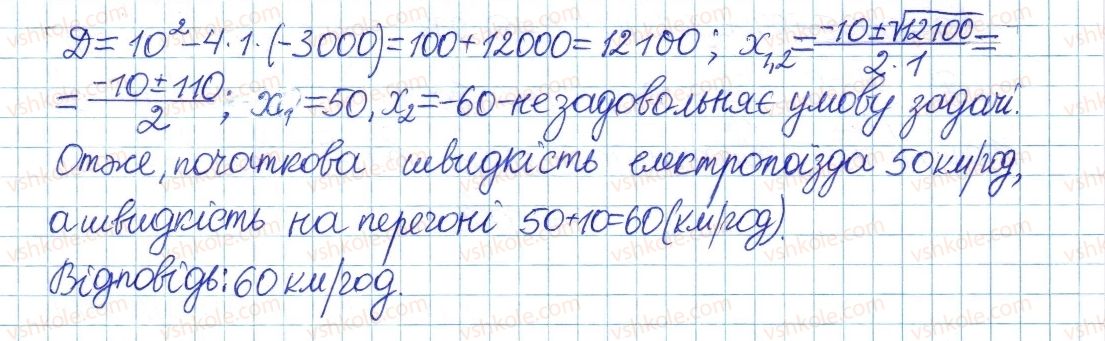 Д = 10² - 4·1·(-3000) = 100 + 12000 = 12100; x₁,₂ = (-10 ± √12100)/(2·1) =
= (-10 ± 110)/2; x₁ = 50, x₂ = -60 - не задовольняє умову задачі.
Отже, початкова швидкість електропоїзда 50 км/год,
а швидкість на перегоні 50+10=60 (км/год).
Відповідь: 60 км/год.